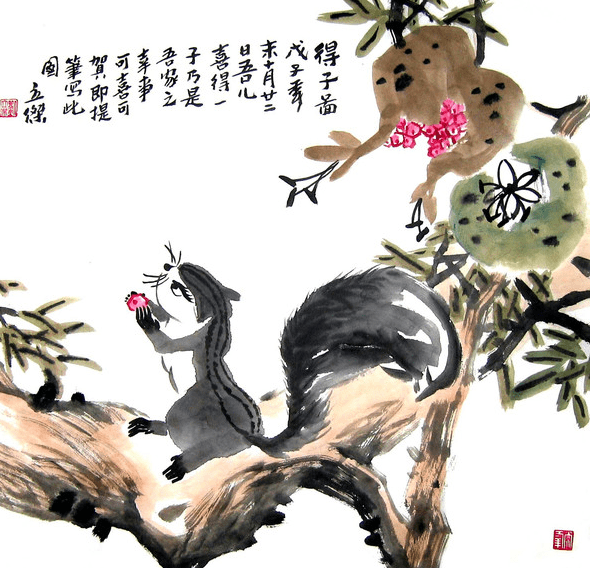 得子啚
戊子秊
末十月廿二
日吾儿
喜得一
子乃是
吾家之
幸事
可喜可
賀即提
筆写此
图
立傑